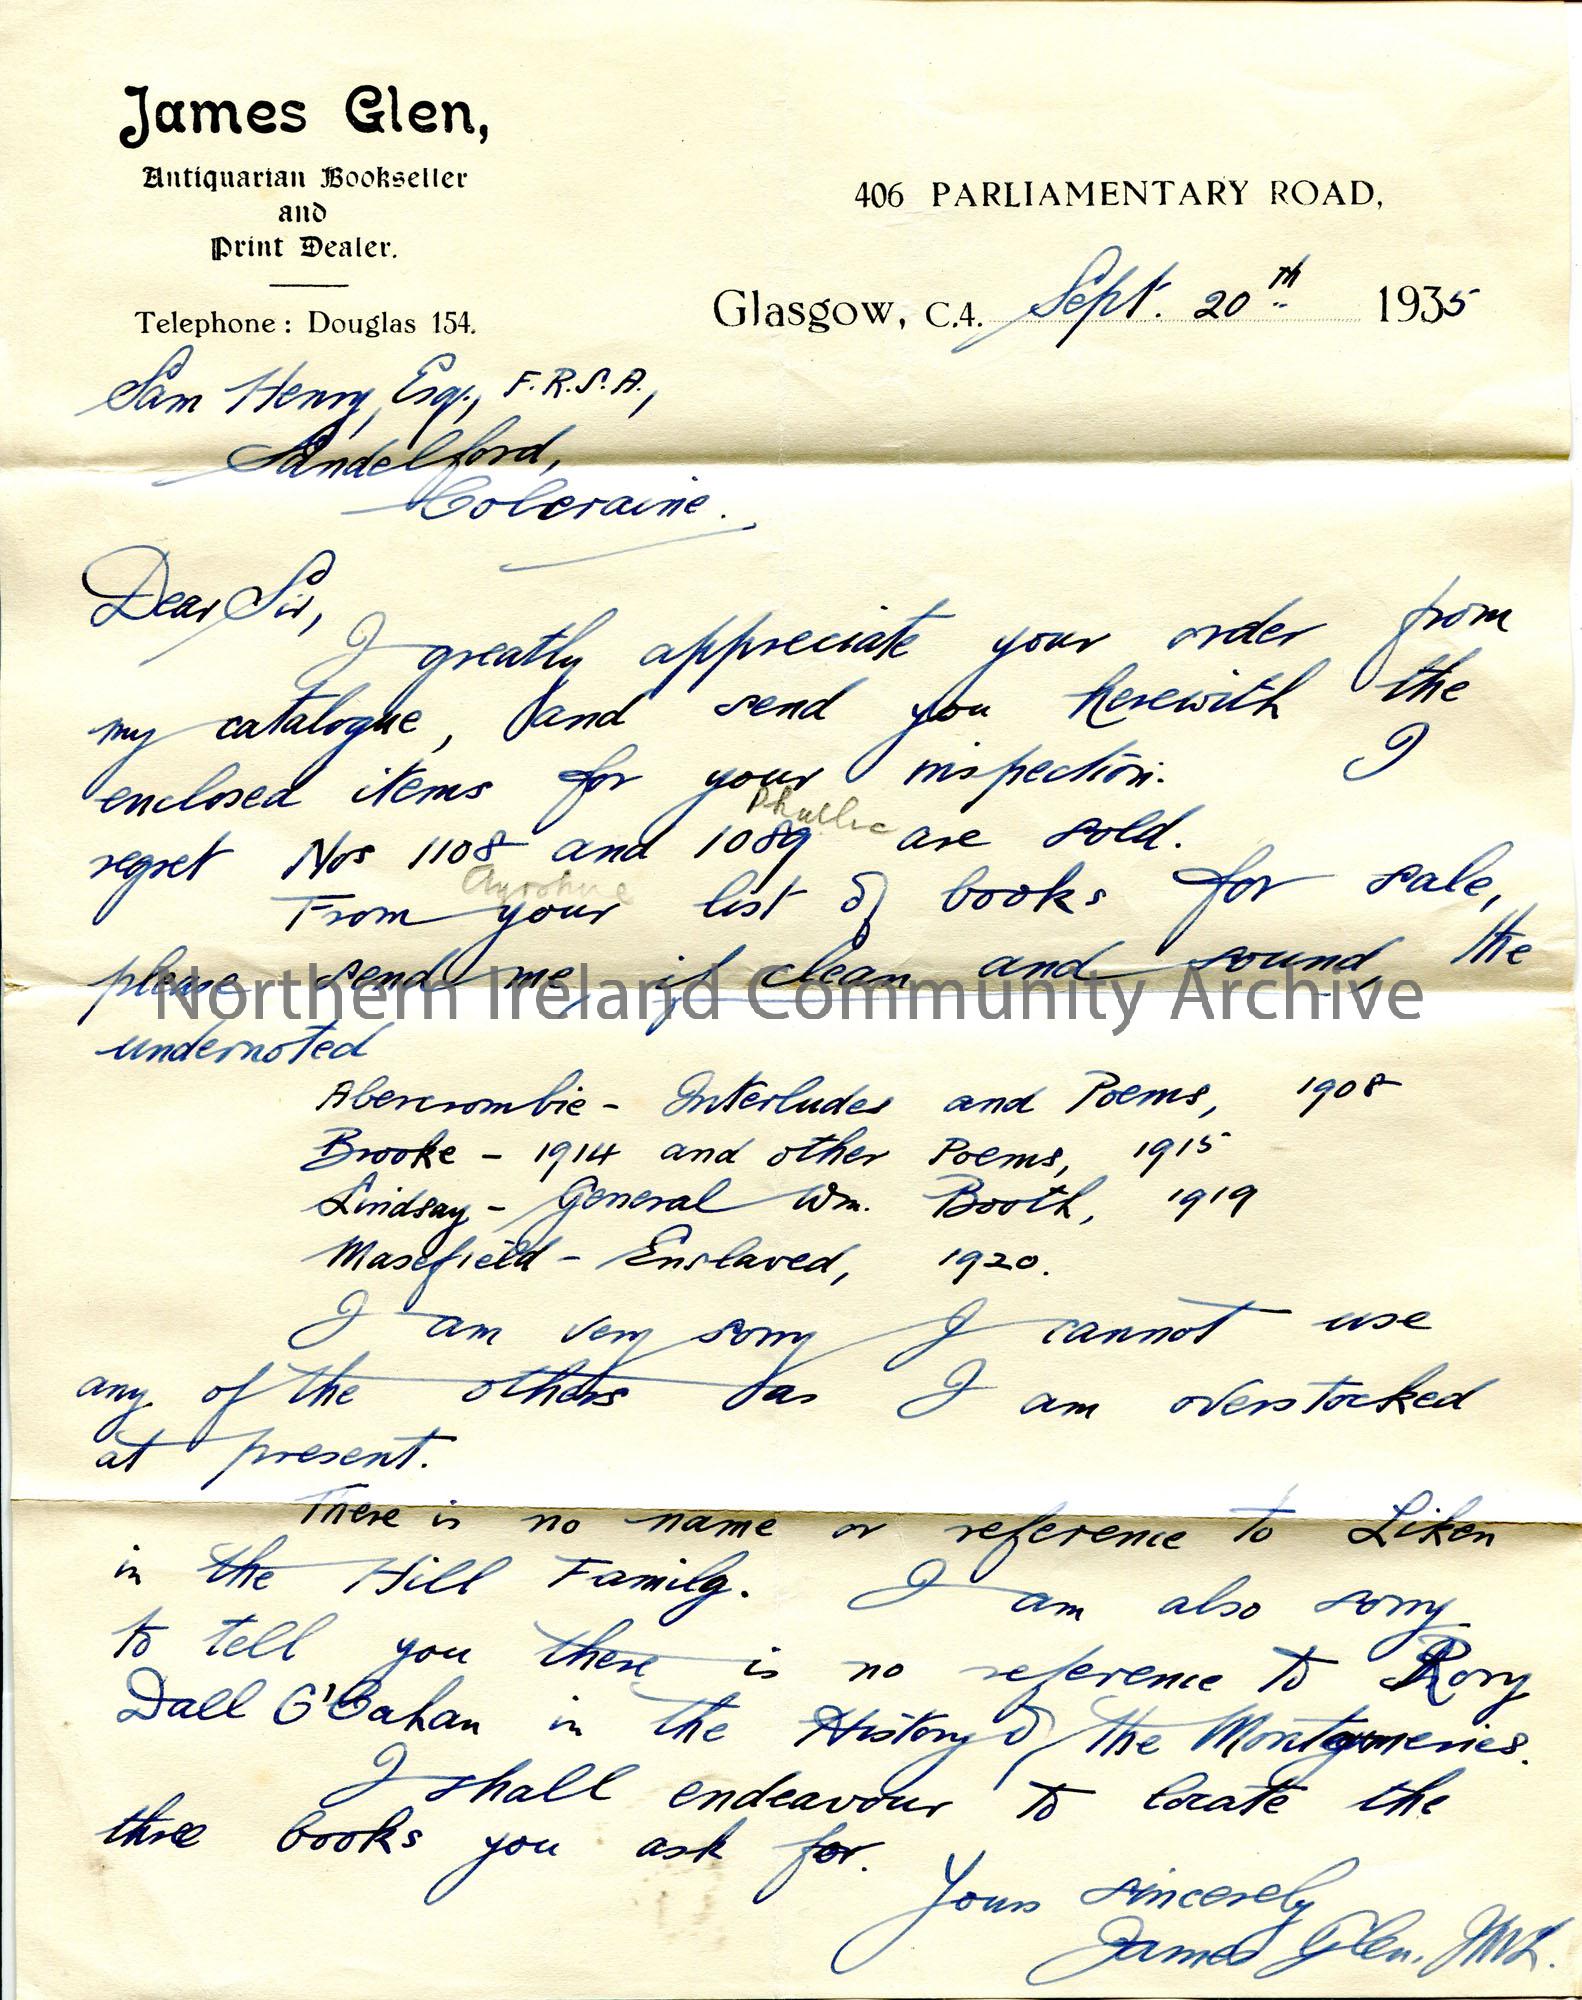 James Glen,
Antiquarian Bookseller
and
Print Dealer.
Telephone: Douglas 154.
406 PARLIAMENTARY ROAD,
Glasgow, C.4. Sept. 20th 1935
Sam Henry, Esq., F.R.S.A.,
Sandelford,
Coleraine.
Dear Sir,
I greatly appreciate your order from
my catalogue, and send you herewith the
enclosed items for your inspection. I
Phallic
regret Nos 1108 and 1089 are sold.
Ayrshire
From your list of books for sale,
please send me, if clean and sound, the
Northern Ireland Community Archive
undernoted
Abercrombie - Interludes and Poems, 1908
Brooke - 1914 and other Poems, 1915
Lindsay - General Wm. Booth, 1919
Masefield - Enslaved, 1920.
I am very sorry I cannot use
any of the others as I am overstocked
at present.
There is no name or reference to Liken
in the Hill Family. I am also sorry
to tell you there is no reference to Rory
Dall O'Cahan in the History of the Montgomeries.
I shall endeavour to locate the
three books you ask for.
Yours sincerely
James Glen.